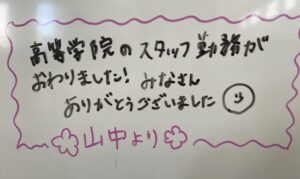 高等学院のスタッフ勤務が
おわりました！みなさん
ありがとうございました
山中より